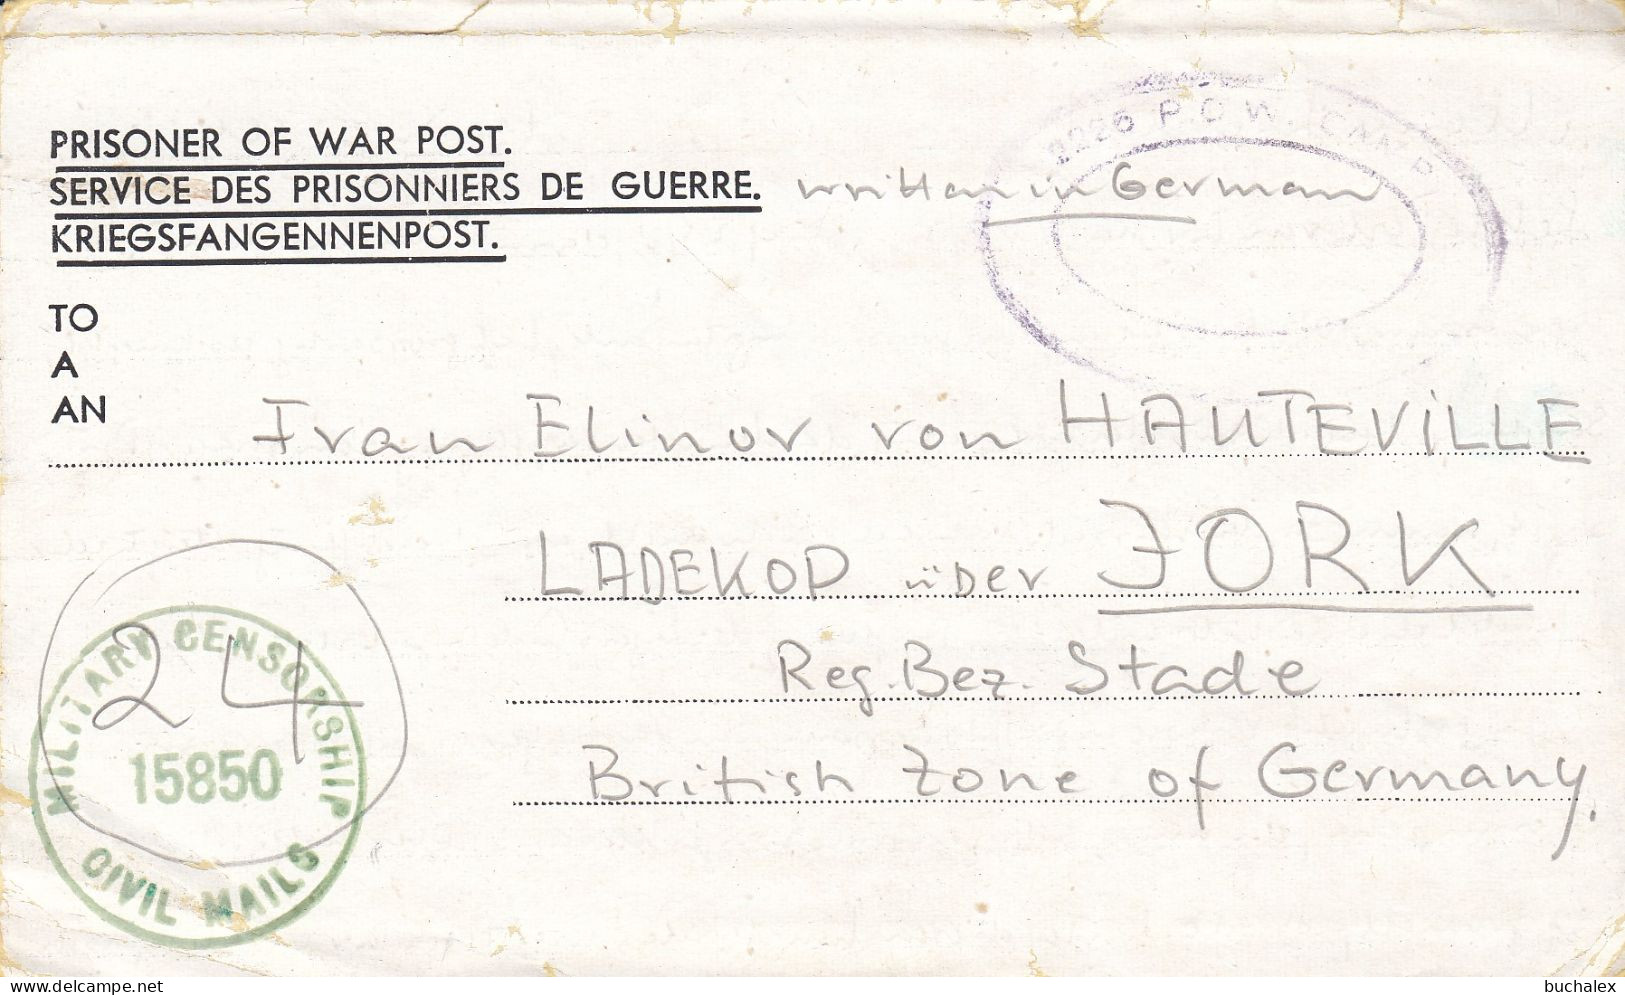 2226 P.O.W. CAMP
PRISONER OF WAR POST.
SERVICE DES PRISONNIERS DE GUERRE. written in German
KRIEGSFANGENNENPOST.
TO
A
AN
Frau Elinor von HAUTEVILLE
LADEKOP über JORK
Reg. Bez. Stade
British Zone of Germany.
24
MILITARY CENSORSHIP
15850
CIVIL MAILS
delcampe.net
buchalex